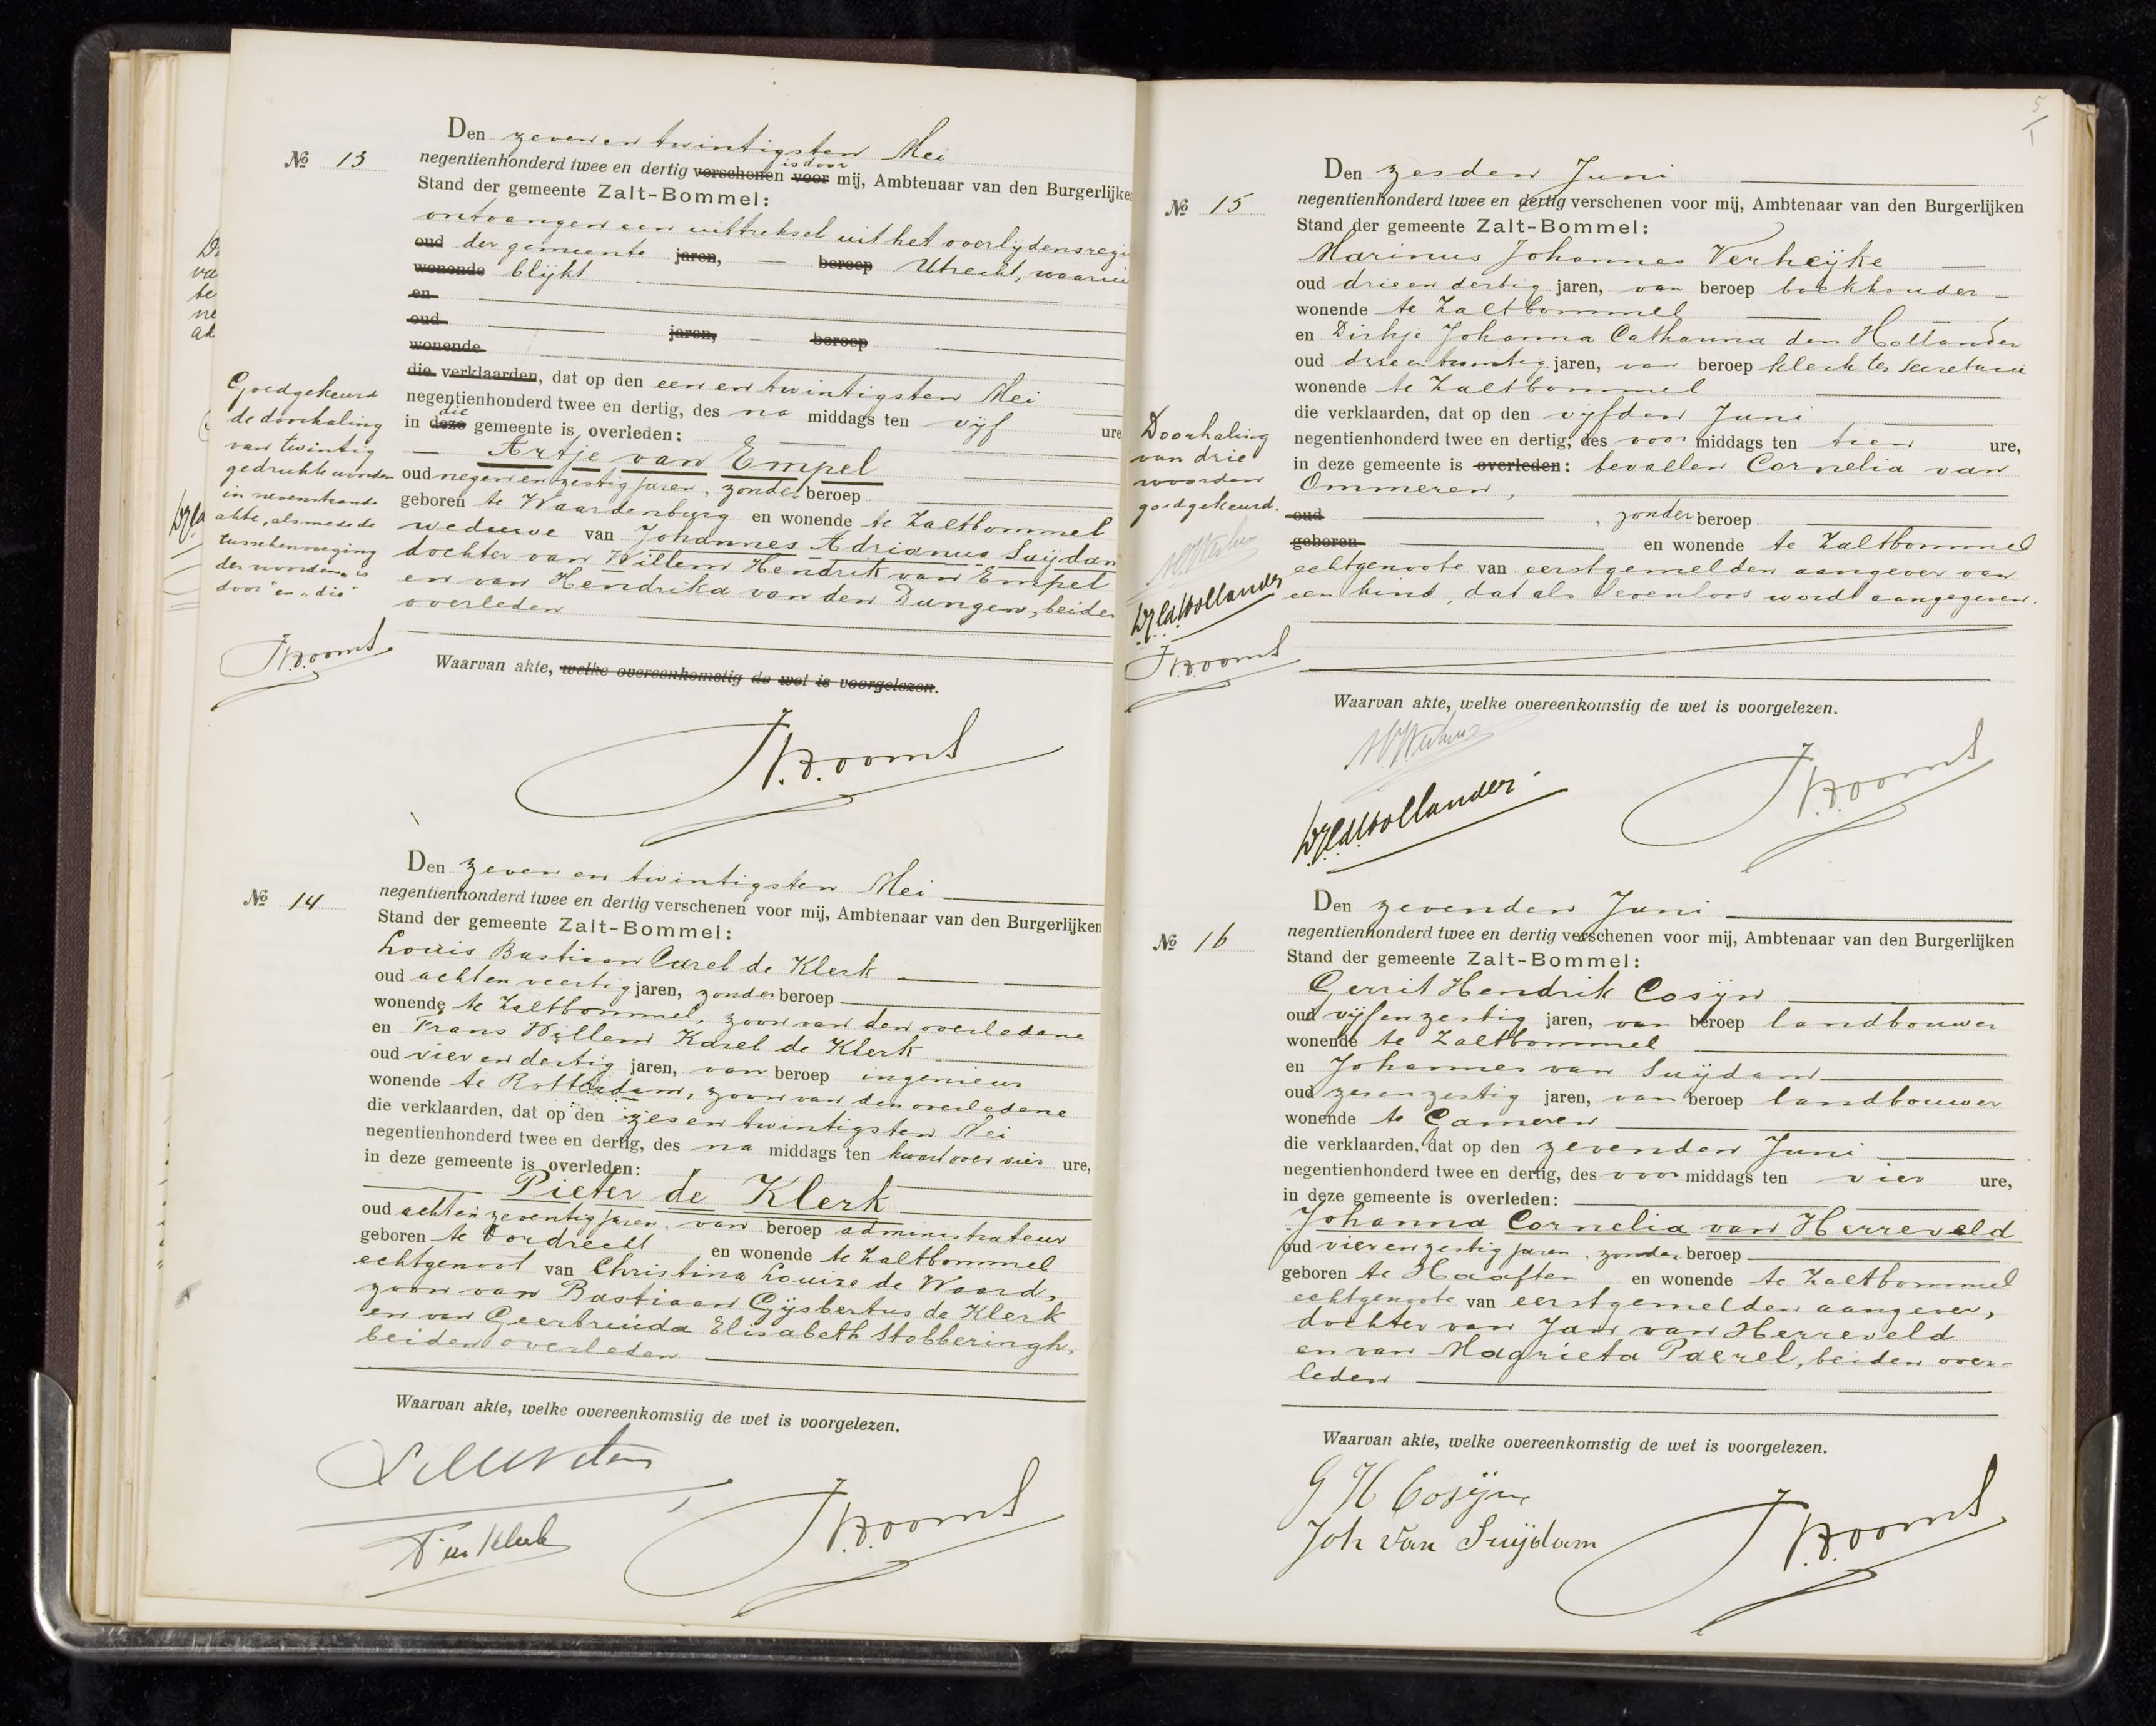 Den zeven en twintigsten Mei
No 13
negentienhonderd twee en dertig verschenen voor is door mij, Ambtenaar van den Burgerlijken
Stand der gemeente Zalt-Bommel:
ontvangen een uittreksel uit het overlijdensregi
oud der gemeente jaren, — beroep Utrecht, waaruit
wonende blijkt
en
oud jaren, — beroep
wonende
die verklaarden, dat op den een en twintigsten Mei
negentienhonderd twee en dertig, des na middags ten vijf ure
in deze die gemeente is overleden:
— Artje van Empel
oud negen en zestig jaren, zonder beroep
geboren te Waardenburg en wonende te Zaltbommel
weduwe van Johannes Adrianus Suijdam
dochter van Willem Hendrik van Empel
en van Hendrika van den Dungen, beiden
overleden
Goedgekeurd
de doorhaling
van twintig
gedrukte woorden
in nevenstaande
akte, alsmede de
tusschenvoeging
der woorden „is
door" en „die"
JWDooms
Waarvan akte, welke overeenkomstig de wet is voorgelezen.
Den zeven en twintigsten Mei
No 14
negentienhonderd twee en dertig verschenen voor mij, Ambtenaar van den Burgerlijken
Stand der gemeente Zalt-Bommel:
Louis Bastiaan Carel de Klerk
oud acht en veertig jaren, zonder beroep
wonende te Zaltbommel, zoon van den overledene
en Frans Willem Karel de Klerk
oud vier en dertig jaren, van beroep ingenieur
wonende te Rotterdam, zoon van den overledene
die verklaarden, dat op den zes en twintigsten Mei
negentienhonderd twee en dertig, des na middags ten kwart over vier ure,
in deze gemeente is overleden:
Pieter de Klerk
oud acht en zeventig jaren, van beroep administrateur
geboren te Dordrecht en wonende te Zaltbommel
echtgenoot van Christina Louize de Waard,
zoon van Bastiaan Gijsbertus de Klerk
en van Geertruida Elisabeth Stobberingh,
beiden overleden
Waarvan akte, welke overeenkomstig de wet is voorgelezen.
5
1
Den zesden Juni
No 15
negentienhonderd twee en dertig verschenen voor mij, Ambtenaar van den Burgerlijken
Stand der gemeente Zalt-Bommel:
Marinus Johannes Verheijke
oud drie en dertig jaren, van beroep boekhouder
wonende te Zaltbommel
en Dirkje Johanna Catharina den Hollander
oud drie en twintig jaren, van beroep klerk ter secretarie
wonende te Zaltbommel
die verklaarden, dat op den vijfden Juni
negentienhonderd twee en dertig, des voor middags ten tien ure,
in deze gemeente is overleden: bevallen Cornelia van
Ommeren,
oud , zonder beroep
geboren en wonende te Zaltbommel
echtgenoote van eerstgemelden aangever van
een kind, dat als levenloos wordt aangegeven.
Doorhaling
van drie
woorden
goedgekeurd.
DJCdHollander
Waarvan akte, welke overeenkomstig de wet is voorgelezen.
DJCdHollander
Den zevenden Juni
No 16
negentienhonderd twee en dertig verschenen voor mij, Ambtenaar van den Burgerlijken
Stand der gemeente Zalt-Bommel:
Gerrit Hendrik Cosijn
oud vijf en zestig jaren, van beroep landbouwer
wonende te Zaltbommel
en Johannes van Suijdam
oud zes en zestig jaren, van beroep landbouwer
wonende te Gameren
die verklaarden, dat op den zevenden Juni
negentienhonderd twee en dertig, des voor middags ten vier ure,
in deze gemeente is overleden:
Johanna Cornelia van Herreveld
oud vier en zestig jaren, zonder beroep
geboren te Haaften en wonende te Zaltbommel
echtgenoote van eerstgemelden aangever,
dochter van Jan van Herreveld
en van Magrieta Paerel, beiden over-
leden
Waarvan akte, welke overeenkomstig de wet is voorgelezen.
G H Cosijn
Joh van Suijdam